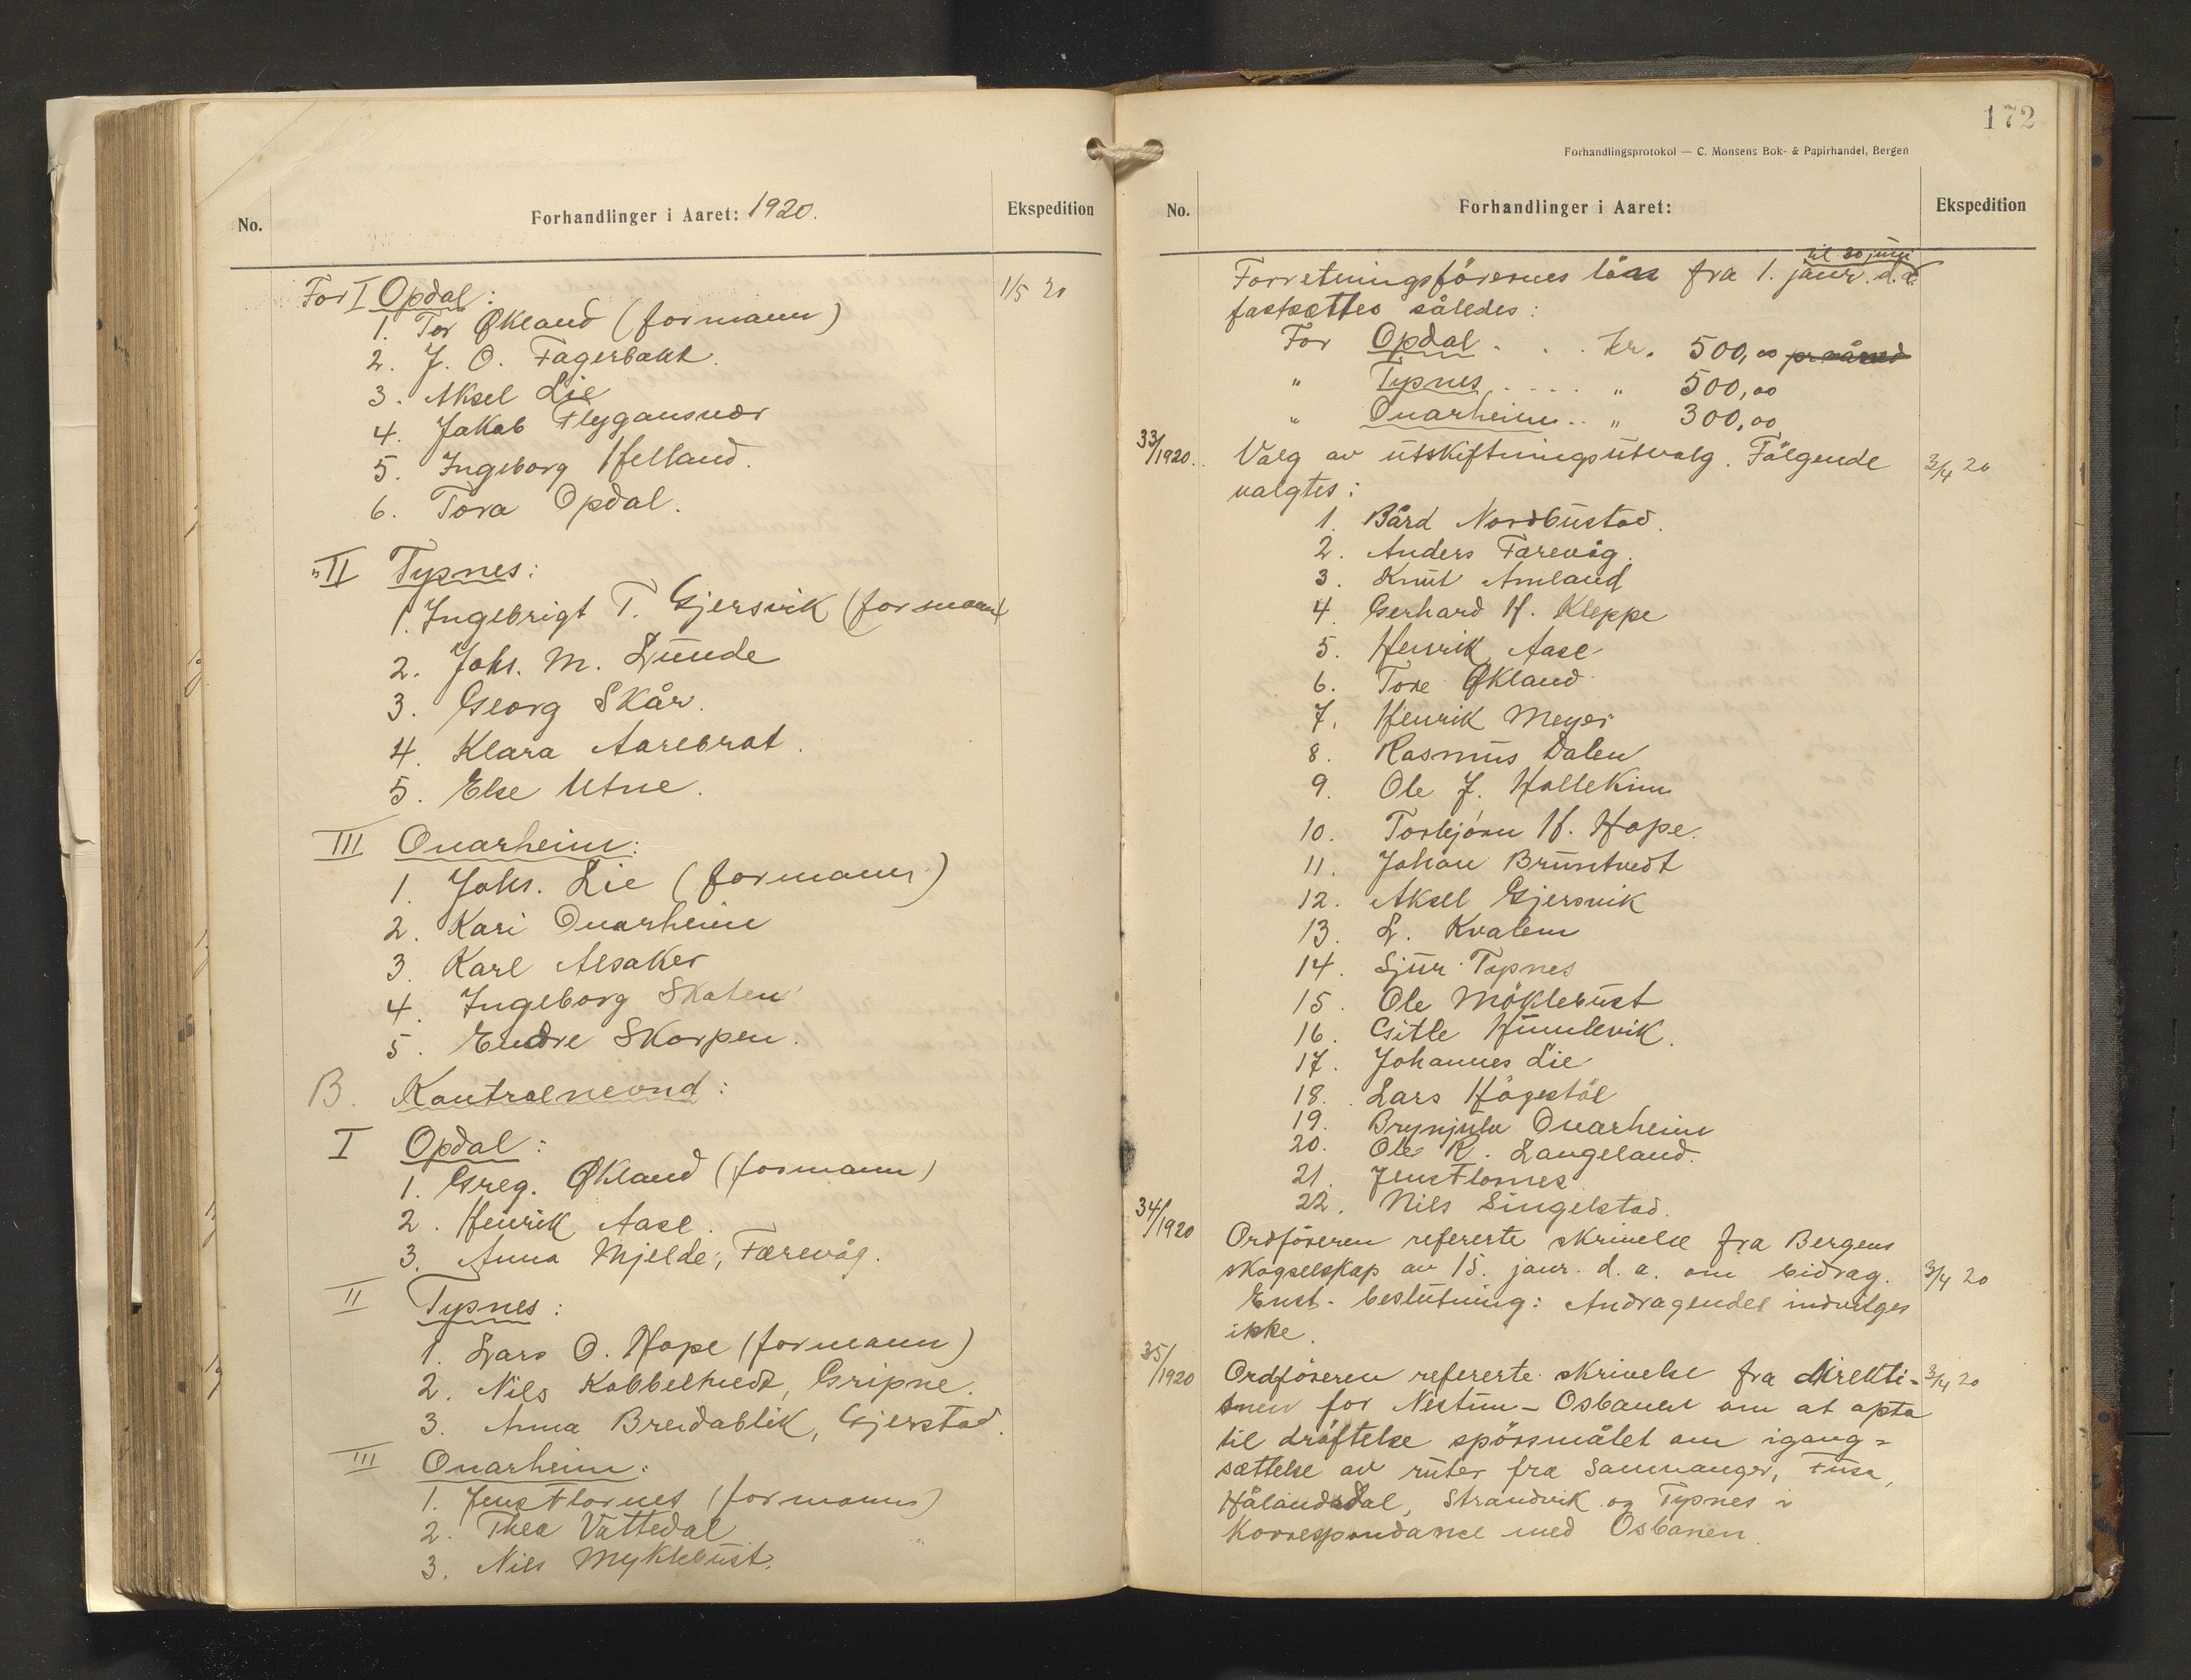 No.
Forhandlinger i Aaret: 1920.
Ekspedition
For I Opdal:
1/5 20
1. Tor Økland (formann)
2. J. O. Fagerbakk.
3. Aksel Lie
4. Jakob Flygansvær
5. Ingeborg Helland.
6. Tora Opdal.
" II Tysnes:
1. Ingebrigt T. Gjersvik (formann)
2. Johs. M. Lunde
3. Georg Skår.
4. Klara Aarebrot.
5. Else Utne.
III Onarheim:
1. Johs. Lie (formann)
2. Kari Onarheim
3. Karl Alsaker
4. Ingeborg Skaten
5. Endre Skorpen.
B. Kontrolnevnd:
I Opdal:
1. Greg. Økland (formann)
2. Henrik Aase.
3. Anna Mjelde, Færevåg.
II Tysnes:
1. Lars O. Hope (formann)
2. Nils Kobbeltvedt, Gripne.
3. Anna Breidablik, Gjerstad.
III Onarheim:
1. Jens Flornes (formann)
2. Thea Vattedal
3. Nils Myklebust.
172
Forhandlingsprotokol — C. Monsens Bok- & Papirhandel, Bergen
No.
Forhandlinger i Aaret:
Ekspedition
til 30 juni
Forretningsförernes lön fra 1. janr. d.a.
fastsættes således:
For Opdal . . . kr. 500,00 pr måned
" Tysnes . . . . " 500,00
" Onarheim . . " 300,00
33/1920. Valg av utskiftningsutvalg. Fölgende
3/4 20
valgtes:
1. Bård Nordbustad.
2. Anders Færevåg.
3. Knut Amland
4. Gerhard H. Kleppe
5. Henrik Aase
6. Tore Økland
7. Henrik Meyer
8. Rasmus Dalen
9. Ole J. Hallekim
10. Torbjörn H. Hope.
11. Johan Bruntvedt
12. Aksel Gjersvik
13. L. Kvalem
14. Sjur Tysnes
15. Ole Möklebust
16. Gitle Humlevik.
17. Johannes Lie
18. Lars Högestöl
19. Brynjulv Onarheim
20. Ole K. Langeland.
21. Jens Flornes
22. Nils Singelstad.
34/1920 Ordföreren refererte skrivelse fra Bergens
skogselskap av 15. janr. d. a. om bidrag.
3/4 20
Enst. beslutning: Andragendet indvilges
ikke.
35/1920 Ordföreren refererte skrivelse fra direkti-
3/4 20
onen for Nestun-Osbanen om at opta
til dröftelse spörsmålet om igang-
sættelse av ruter fra Samnanger, Fusa,
Hålandsdal, Strandvik og Tysnes i
korrespondance med Osbanen